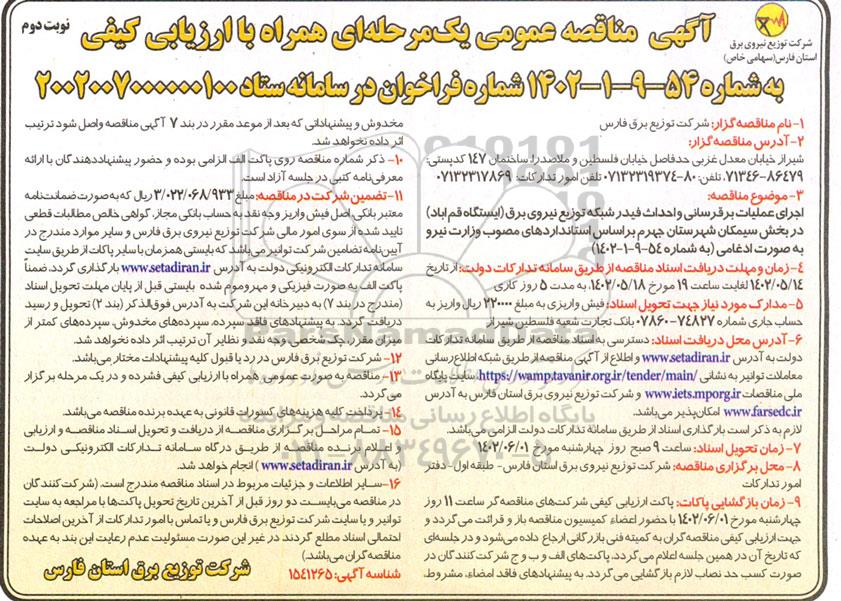 نوبت دوم
آگهی مناقصه عمومی یک‌مرحله‌ای همراه با ارزیابی کیفی
به شماره ۵۴-۹-۱-۱۴۰۲ شماره فراخوان در سامانه ستاد ۲۰۰۲۰۰۷۰۰۰۰۰۰۱۰۰
شرکت توزیع نیروی برق
استان فارس(سهامی خاص)
۱-نام مناقصه‌گزار: شرکت توزیع برق فارس
۲-آدرس مناقصه‌گزار:
شیراز خیابان معدل غربی حدفاصل خیابان فلسطین و ملاصدرا، ساختمان ۱۴۷ کدپستی:
۸۶۴۷۹-۷۱۳۴۶، تلفن: ۸۰-۰۷۱۳۲۳۱۹۳۷۴ تلفن امور تدارکات: ۰۷۱۳۲۳۱۷۸۶۹
۳-موضوع مناقصه:
اجرای عملیات برق‌رسانی و احداث فیدر شبکه توزیع نیروی برق (ایستگاه قم‌اباد)
در بخش سیمکان شهرستان جهرم براساس استانداردهای مصوب وزارت نیرو
به صورت ادغامی (به شماره ۵۴-۹-۱-۱۴۰۲)
۴-زمان و مهلت دریافت اسناد مناقصه از طریق سامانه تدارکات دولت: از تاریخ
۱۴۰۲/۰۵/۱۴ لغایت ساعت ۱۹ مورخ ۱۴۰۲/۰۵/۱۸ به مدت ۵ روز کاری
۵-مدارک مورد نیاز جهت تحویل اسناد: فیش واریزی به مبلغ ۲۲۰۰۰۰ ریال واریز به
حساب جاری شماره ۷۴۸۲۷-۰۷۸۶۰ بانک تجارت شعبه فلسطین شیراز
۶-آدرس محل دریافت اسناد: دسترسی به اسناد مناقصه از طریق سامانه تدارکات
دولت به آدرس www.setadiran.ir و اطلاع از آگهی مناقصه از طریق شبکه اطلاع رسانی
معاملات توانیر به نشانی https://wamp.tavanir.org.ir/tender/main/، سایت پایگاه
ملی مناقصات www.iets.mporg.ir و شرکت توزیع نیروی برق استان فارس به آدرس
www.farsedc.ir امکان‌پذیر می‌باشد.
لازم به ذکر است بارگذاری اسناد از طریق سامانه تدارکات دولت الزامی می‌باشد.
۷-زمان تحویل اسناد: ساعت ۹ صبح روز چهارشنبه مورخ ۱۴۰۲/۰۶/۰۱
۸-محل برگزاری مناقصه: شرکت توزیع نیروی برق استان فارس- طبقه اول- دفتر
امور تدارکات
۹-زمان بازگشایی پاکات: پاکت ارزیابی کیفی شرکت‌های مناقصه‌گر ساعت ۱۱ روز
چهارشنبه مورخ ۱۴۰۲/۰۶/۰۱ با حضور اعضاء کمیسیون مناقصه باز و قرائت می‌گردد و
جهت ارزیابی کیفی مناقصه‌گران به کمیته فنی بازرگانی ارجاع داده می‌شود و در جلسه‌ای
که تاریخ آن در همین جلسه اعلام می‌گردد، پاکت‌های الف و ب و ج شرکت کنندگان در
صورت کسب حد نصاب لازم بازگشایی می‌گردد. به پیشنهادهای فاقد امضاء، مشروط،
مخدوش و پیشنهاداتی که بعد از موعد مقرر در بند ۷ آگهی مناقصه واصل شود ترتیب
اثر داده نخواهد شد.
۱۰- ذکر شماره مناقصه روی پاکت الف الزامی بوده و حضور پیشنهاددهندگان با ارائه
معرفی‌نامه کتبی در جلسه آزاد است.
۱۱-تضمین شرکت در مناقصه: مبلغ ۳/۰۲۲/۰۶۸/۹۳۳ ریال که به صورت ضمانت‌نامه
معتبر بانکی، اصل فیش واریز وجه نقد به حساب بانکی مجاز، گواهی خالص مطالبات قطعی
تایید شده از سوی امور مالی شرکت توزیع نیروی برق فارس و سایر موارد مندرج در
آیین‌نامه تضامین شرکت توانیر می‌باشد که بایستی همزمان با سایر پاکات از طریق سایت
سامانه تدارکات الکترونیکی دولت به آدرس www.setadiran.ir بارگذاری گردد. ضمناً
پاکت الف به صورت فیزیکی و مهروموم شده بایستی قبل از پایان مهلت تحویل اسناد
(مندرج در بند ۷) به دبیرخانه این شرکت به آدرس فوق‌الذکر (بند ۲) تحویل و رسید
دریافت گردد. به پیشنهادهای فاقد سپرده، سپرده‌های مخدوش، سپرده‌های کمتر از
میزان مقرر، چک شخصی، وجه نقد و نظایر آن ترتیب اثر داده نخواهد شد.
۱۲- شرکت توزیع برق فارس در رد یا قبول کلیه پیشنهادات مختار می‌باشد.
۱۳- مناقصه به صورت عمومی همراه با ارزیابی کیفی فشرده و در یک مرحله برگزار
می‌گردد.
۱۴- پرداخت کلیه هزینه‌های کسورات قانونی به عهده برنده مناقصه می‌باشد.
۱۵- تمام مراحل برگزاری مناقصه از دریافت و تحویل اسناد مناقصه و ارزیابی
و اعلام برنده مناقصه از طریق درگاه سامانه تدارکات الکترونیکی دولت
(به آدرس www.setadiran.ir) انجام خواهد شد.
۱۶-سایر اطلاعات و جزئیات مربوط در اسناد مناقصه مندرج است. (شرکت کنندگان
در مناقصه می‌بایست دو روز قبل از آخرین تاریخ تحویل پاکت‌ها با مراجعه به سایت
توانیر و یا سایت شرکت توزیع برق فارس و یا تماس با امور تدارکات از آخرین اصلاحات
احتمالی اسناد مطلع گردند در غیر این صورت مسئولیت عدم رعایت این بند به عهده
مناقصه‌گران می‌باشد.)
شناسه آگهی: ۱۵۴۱۲۶۵
شرکت توزیع برق استان فارس
پایگاه اطلاع رسانی مناقصه و مزایده
۰۲۱-۸۸۳۴۹۶۷۰-۵